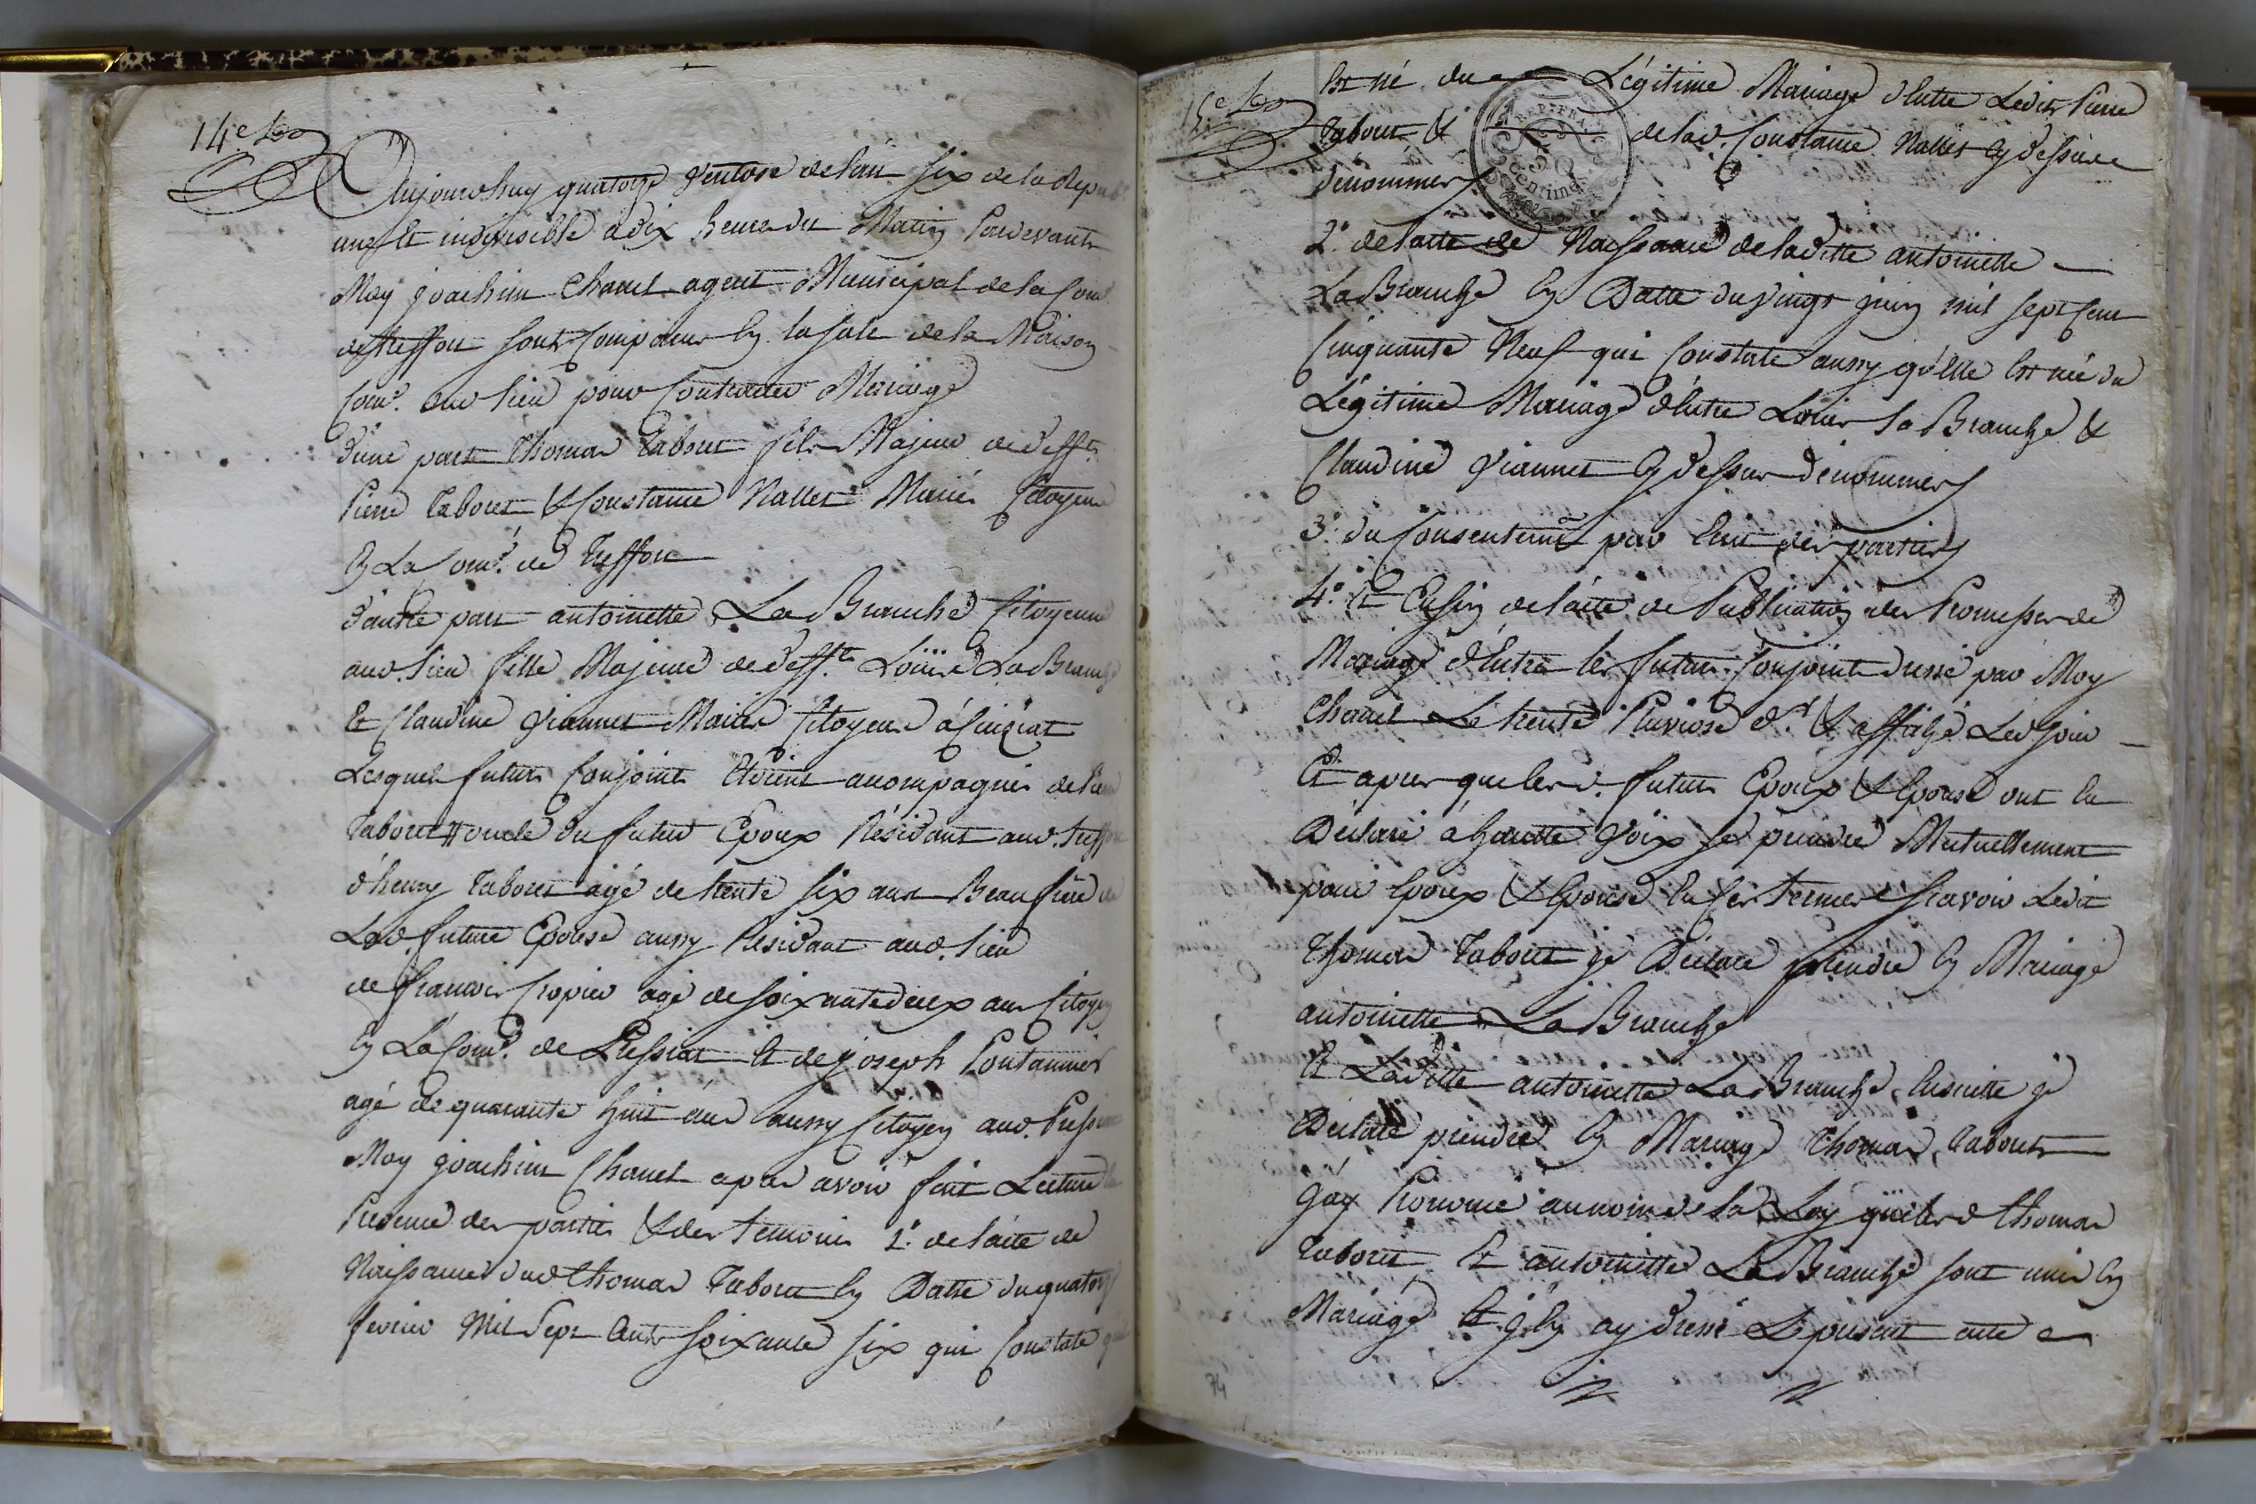 14e
Aujourdhuy quatorze Ventose de lan six de la Repub.
une et indivisible a dix heures du Matin Pardevant
Moy joachim Chanel agent Municipal de la Com.
de treffort sont comparus en la sale de la Maison
Com.e aud lieu pour Contracter Mariage
d'une part thomas tabouret fils Majeur de deffts
Pierre tabouret & Constance Nallet Mariés Citoyens
en La Com.e de treffort
d'autre part antoinette La Branche Citoyenne
aud. lieu fille Majeure de deffts Loüis La Branche
et Claudine Viannet Mariés Citoyens à Cuiziat
Lesquels futurs Conjoints etoient accompagnés de Pierre
tabouret oncle du futur Epoux Résidant aud. treffort
d'henry tabouret agé de trente six ans Beau frère de
Lad. future Epouse aussy Résidant aud. lieu
de francois Cropier agé de soixante deux ans Citoyen
en La Com.e de Pressiat et de joseph Pontannier
agé de quarante huit ans aussy Citoyen aud. Pressiat
Moy joachim Chanel apres avoir fait Lecture en
Presence des parties & des temoins 1.° de l'acte de
Naissance dud thomas tabouret en Datte du quatorze
fevrier Mil Sept Cents soixante six qui Constate qu'il
15e
Est né du Légitime Mariage d'Entre Ledit Pierre
tabouret & de lad. Constance Nallet cy dessus
denommés
2.° de l'acte de Naissance de laditte antoinette
La Branche en Datte du vingt juin mil sept Cent
Cinquante Neuf qui Constate aussy qu'elle Est née du
Légitime Mariage d'Entre Loüis La Branche &
Claudine Viannet Cy dessus dénommés
3.° du Consentement par Ecrit des parties
4.° Et Enfin de l'acte de Publication des Promesses de
Mariage d'Entre les futurs Conjoints dressé par Moy
Chanel Le trente Pluviose d.r & affiché Led jour
Et apres que lesd. futurs Epoux & Epouse ont Eu
Déclaré à hautte Voix se prendre Mutuellement
pour Epoux & Epouse En ces termes scavoir Ledit
thomas tabouret je Déclare prendre en Mariage
antoinette La Branche
Et Laditte antoinette La Branche, Ensuitte je
Déclare prendre en Mariage thomas tabouret
j'ay Prononcé au nom de la Loy que lesd thomas
tabouret Et antoinette La Branche sont unis en
Mariage Et j'En ay dressé Le présent acte
74